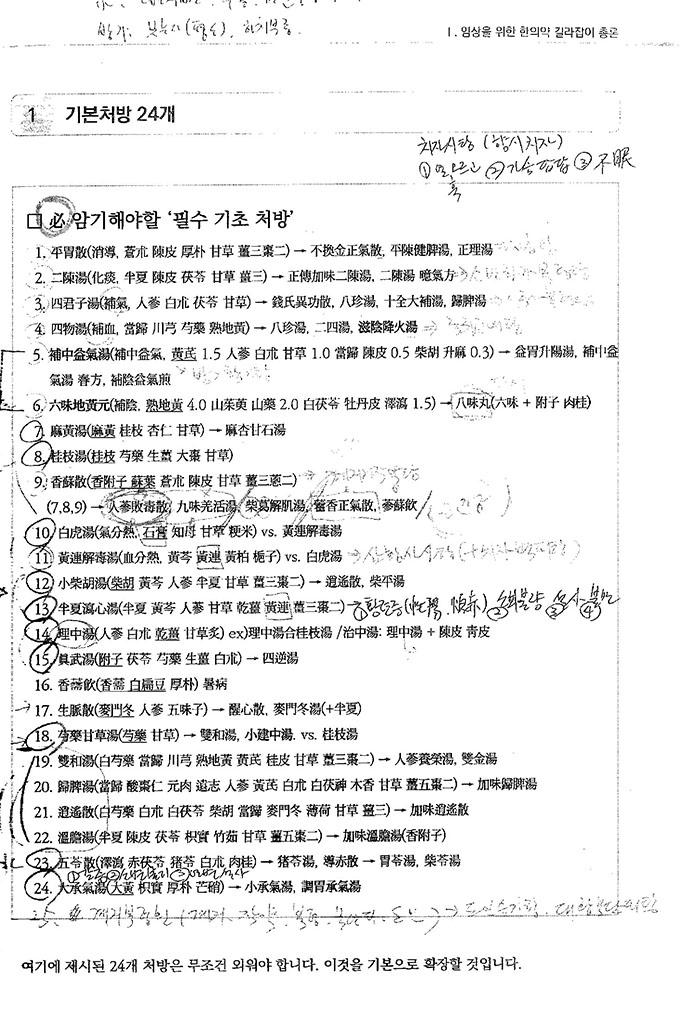 Ⅰ. 임상을 위한 한의약 길라잡이 총론
1 기본처방 24개
치자시탕 (향시치자)
② 가슴답답 ③ 不眠
□ 必 암기해야할 '필수 기초 처방'
1. 平胃散(消導, 蒼朮 陳皮 厚朴 甘草 薑三棗二) → 不換金正氣散, 平陳健脾湯, 正理湯
2. 二陳湯(化痰, 半夏 陳皮 茯苓 甘草 薑三) → 正傳加味二陳湯, 二陳湯 噫氣方
3. 四君子湯(補氣, 人蔘 白朮 茯苓 甘草) → 錢氏異功散, 八珍湯, 十全大補湯, 歸脾湯
4. 四物湯(補血, 當歸 川芎 芍藥 熟地黃) → 八珍湯, 二四湯, 滋陰降火湯
5. 補中益氣湯(補中益氣, 黃芪 1.5 人蔘 白朮 甘草 1.0 當歸 陳皮 0.5 柴胡 升麻 0.3) → 益胃升陽湯, 補中益
氣湯 春方, 補陰益氣煎
6. 六味地黃元(補陰, 熟地黃 4.0 山茱萸 山藥 2.0 白茯苓 牡丹皮 澤瀉 1.5) → 八味丸(六味 + 附子 肉桂)
7. 麻黃湯(麻黃 桂枝 杏仁 甘草) → 麻杏甘石湯
8. 桂枝湯(桂枝 芍藥 生薑 大棗 甘草)
9. 香蘇散(香附子 蘇葉 蒼朮 陳皮 甘草 薑三蔥二)
(7,8,9) → 人蔘敗毒散, 九味羌活湯, 柴葛解肌湯, 藿香正氣散, 蔘蘇飮
10. 白虎湯(氣分熱, 石膏 知母 甘草 粳米) vs. 黃連解毒湯
11. 黃連解毒湯(血分熱, 黃芩 黃連 黃柏 梔子) vs. 白虎湯
12. 小柴胡湯(柴胡 黃芩 人蔘 半夏 甘草 薑三棗二) → 逍遙散, 柴平湯
13. 半夏瀉心湯(半夏 黃芩 人蔘 甘草 乾薑 黃連 薑三棗二)
14. 理中湯(人蔘 白朮 乾薑 甘草炙) ex)理中湯合桂枝湯 /治中湯: 理中湯 + 陳皮 靑皮
15. 眞武湯(附子 茯苓 芍藥 生薑 白朮) → 四逆湯
16. 香薷飮(香薷 白扁豆 厚朴) 暑病
17. 生脈散(麥門冬 人蔘 五味子) → 醒心散, 麥門冬湯(+半夏)
18. 芍藥甘草湯(芍藥 甘草) → 雙和湯, 小建中湯. vs. 桂枝湯
19. 雙和湯(白芍藥 當歸 川芎 熟地黃 黃芪 桂皮 甘草 薑三棗二) → 人蔘養榮湯, 雙金湯
20. 歸脾湯(當歸 酸棗仁 元肉 遠志 人蔘 黃芪 白朮 白茯神 木香 甘草 薑五棗二) → 加味歸脾湯
21. 逍遙散(白芍藥 白朮 白茯苓 柴胡 當歸 麥門冬 薄荷 甘草 薑三) → 加味逍遙散
22. 溫膽湯(半夏 陳皮 茯苓 枳實 竹茹 甘草 薑五棗二) → 加味溫膽湯(香附子)
23. 五苓散(澤瀉 赤茯苓 猪苓 白朮 肉桂) → 猪苓湯, 導赤散 → 胃苓湯, 柴苓湯
24. 大承氣湯(大黃 枳實 厚朴 芒硝) → 小承氣湯, 調胃承氣湯
여기에 제시된 24개 처방은 무조건 외워야 합니다. 이것을 기본으로 확장할 것입니다.